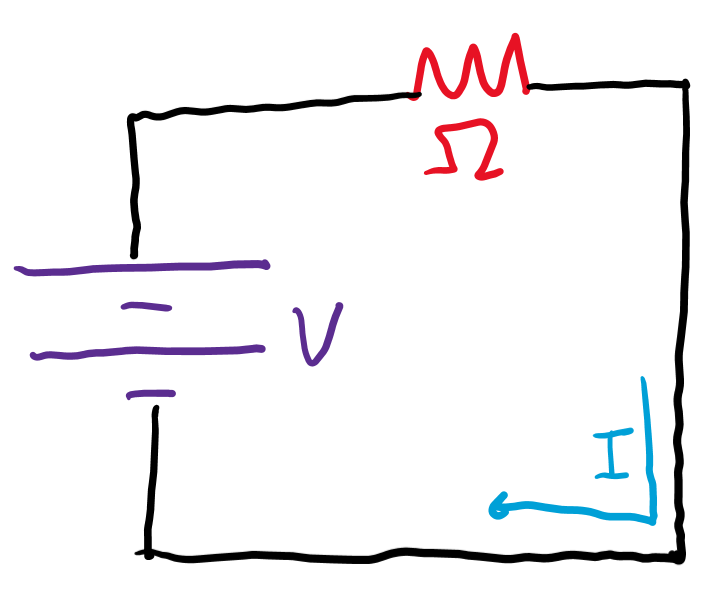 Ω
V
I